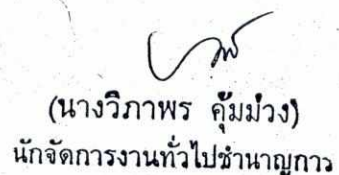 (นางวิภาพร คุ้มม่วง)
นักจัดการงานทั่วไปชำนาญการ